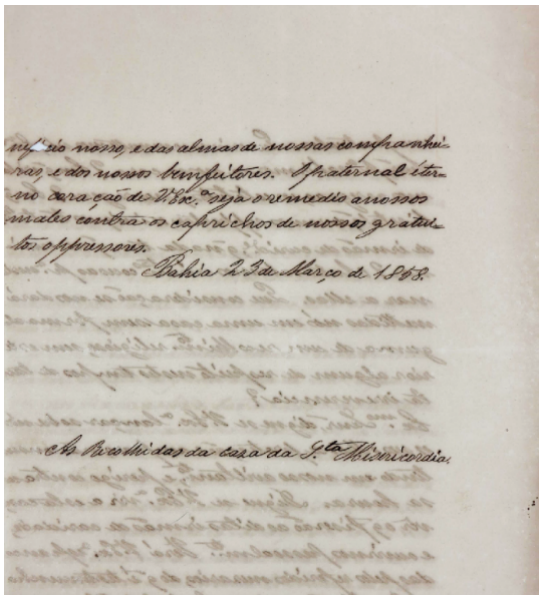 neficio nosso, e das almas de nossas companhei-
ras, e dos nossos bemfeitores. O paternal e ter-
no coração de V. Ex.ª seja o remedio a nossos
males contra os caprichos de nossos gratui-
tos oppressores.
Bahia 23 de Março de 1858.
As Recolhidas da caza da S.ta Misericordia.